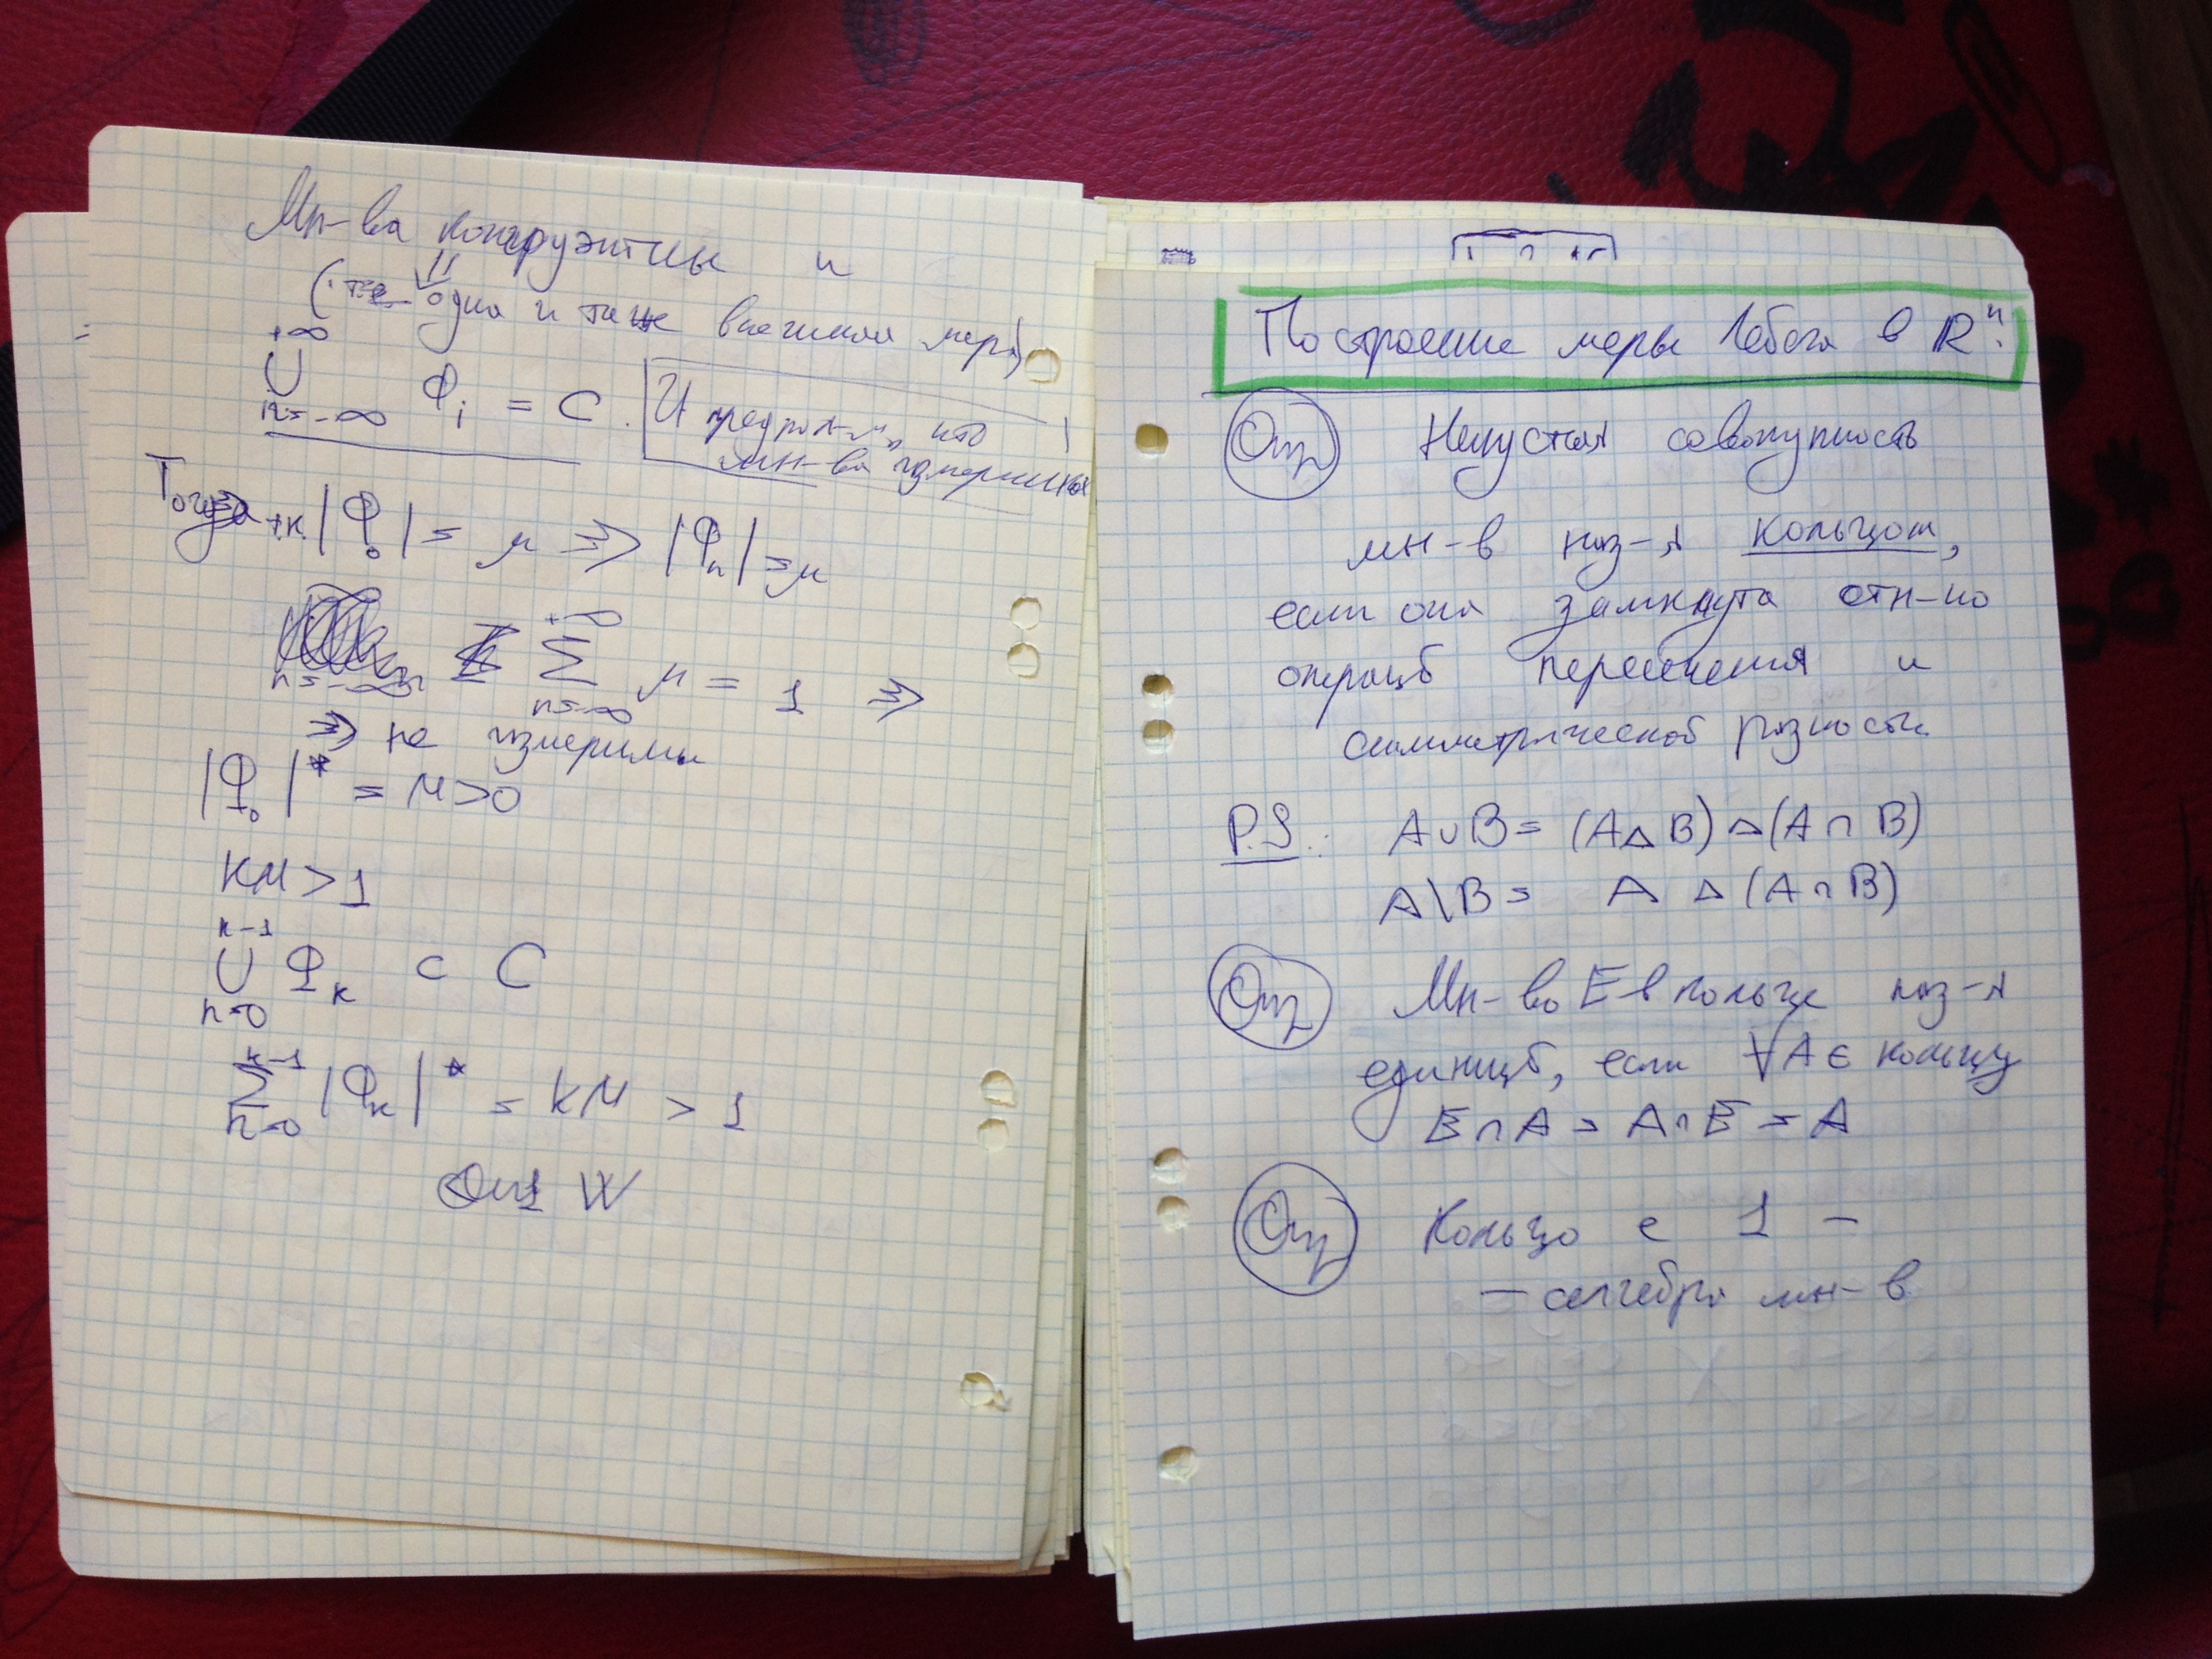 Мн-ва конгруэнтны и
(т.е. одна и таже внешняя мера)
+∞
∪ Φi = C. И предпол-м, что
n=-∞ мн-ва измеримы
Тогда т.к. |Φ₀| = μ ⇒ |Φn| = μ
+∞
∑ μ = 1 ⇒
n=-∞ n=-∞
⇒ не измеримы
|Φ₀|* = M>0
KM>1
k-1
∪ Φk ⊂ C
n=0
k-1
∑ |Φk|* = kM > 1
n=0
W
Построение меры Лебега в ℝⁿ:
Опр Непустая совокупность
мн-в наз-я кольцом,
если она замкнута отн-но
операций пересечения и
симметрической разности.
P.S.: A∪B = (A△B)△(A∩B)
A\B = A △ (A∩B)
Опр Мн-во E в кольце наз-я
единицей, если ∀A ∈ кольцу
E∩A = A∩E = A
Опр Кольцо с 1 –
– алгебра мн-в